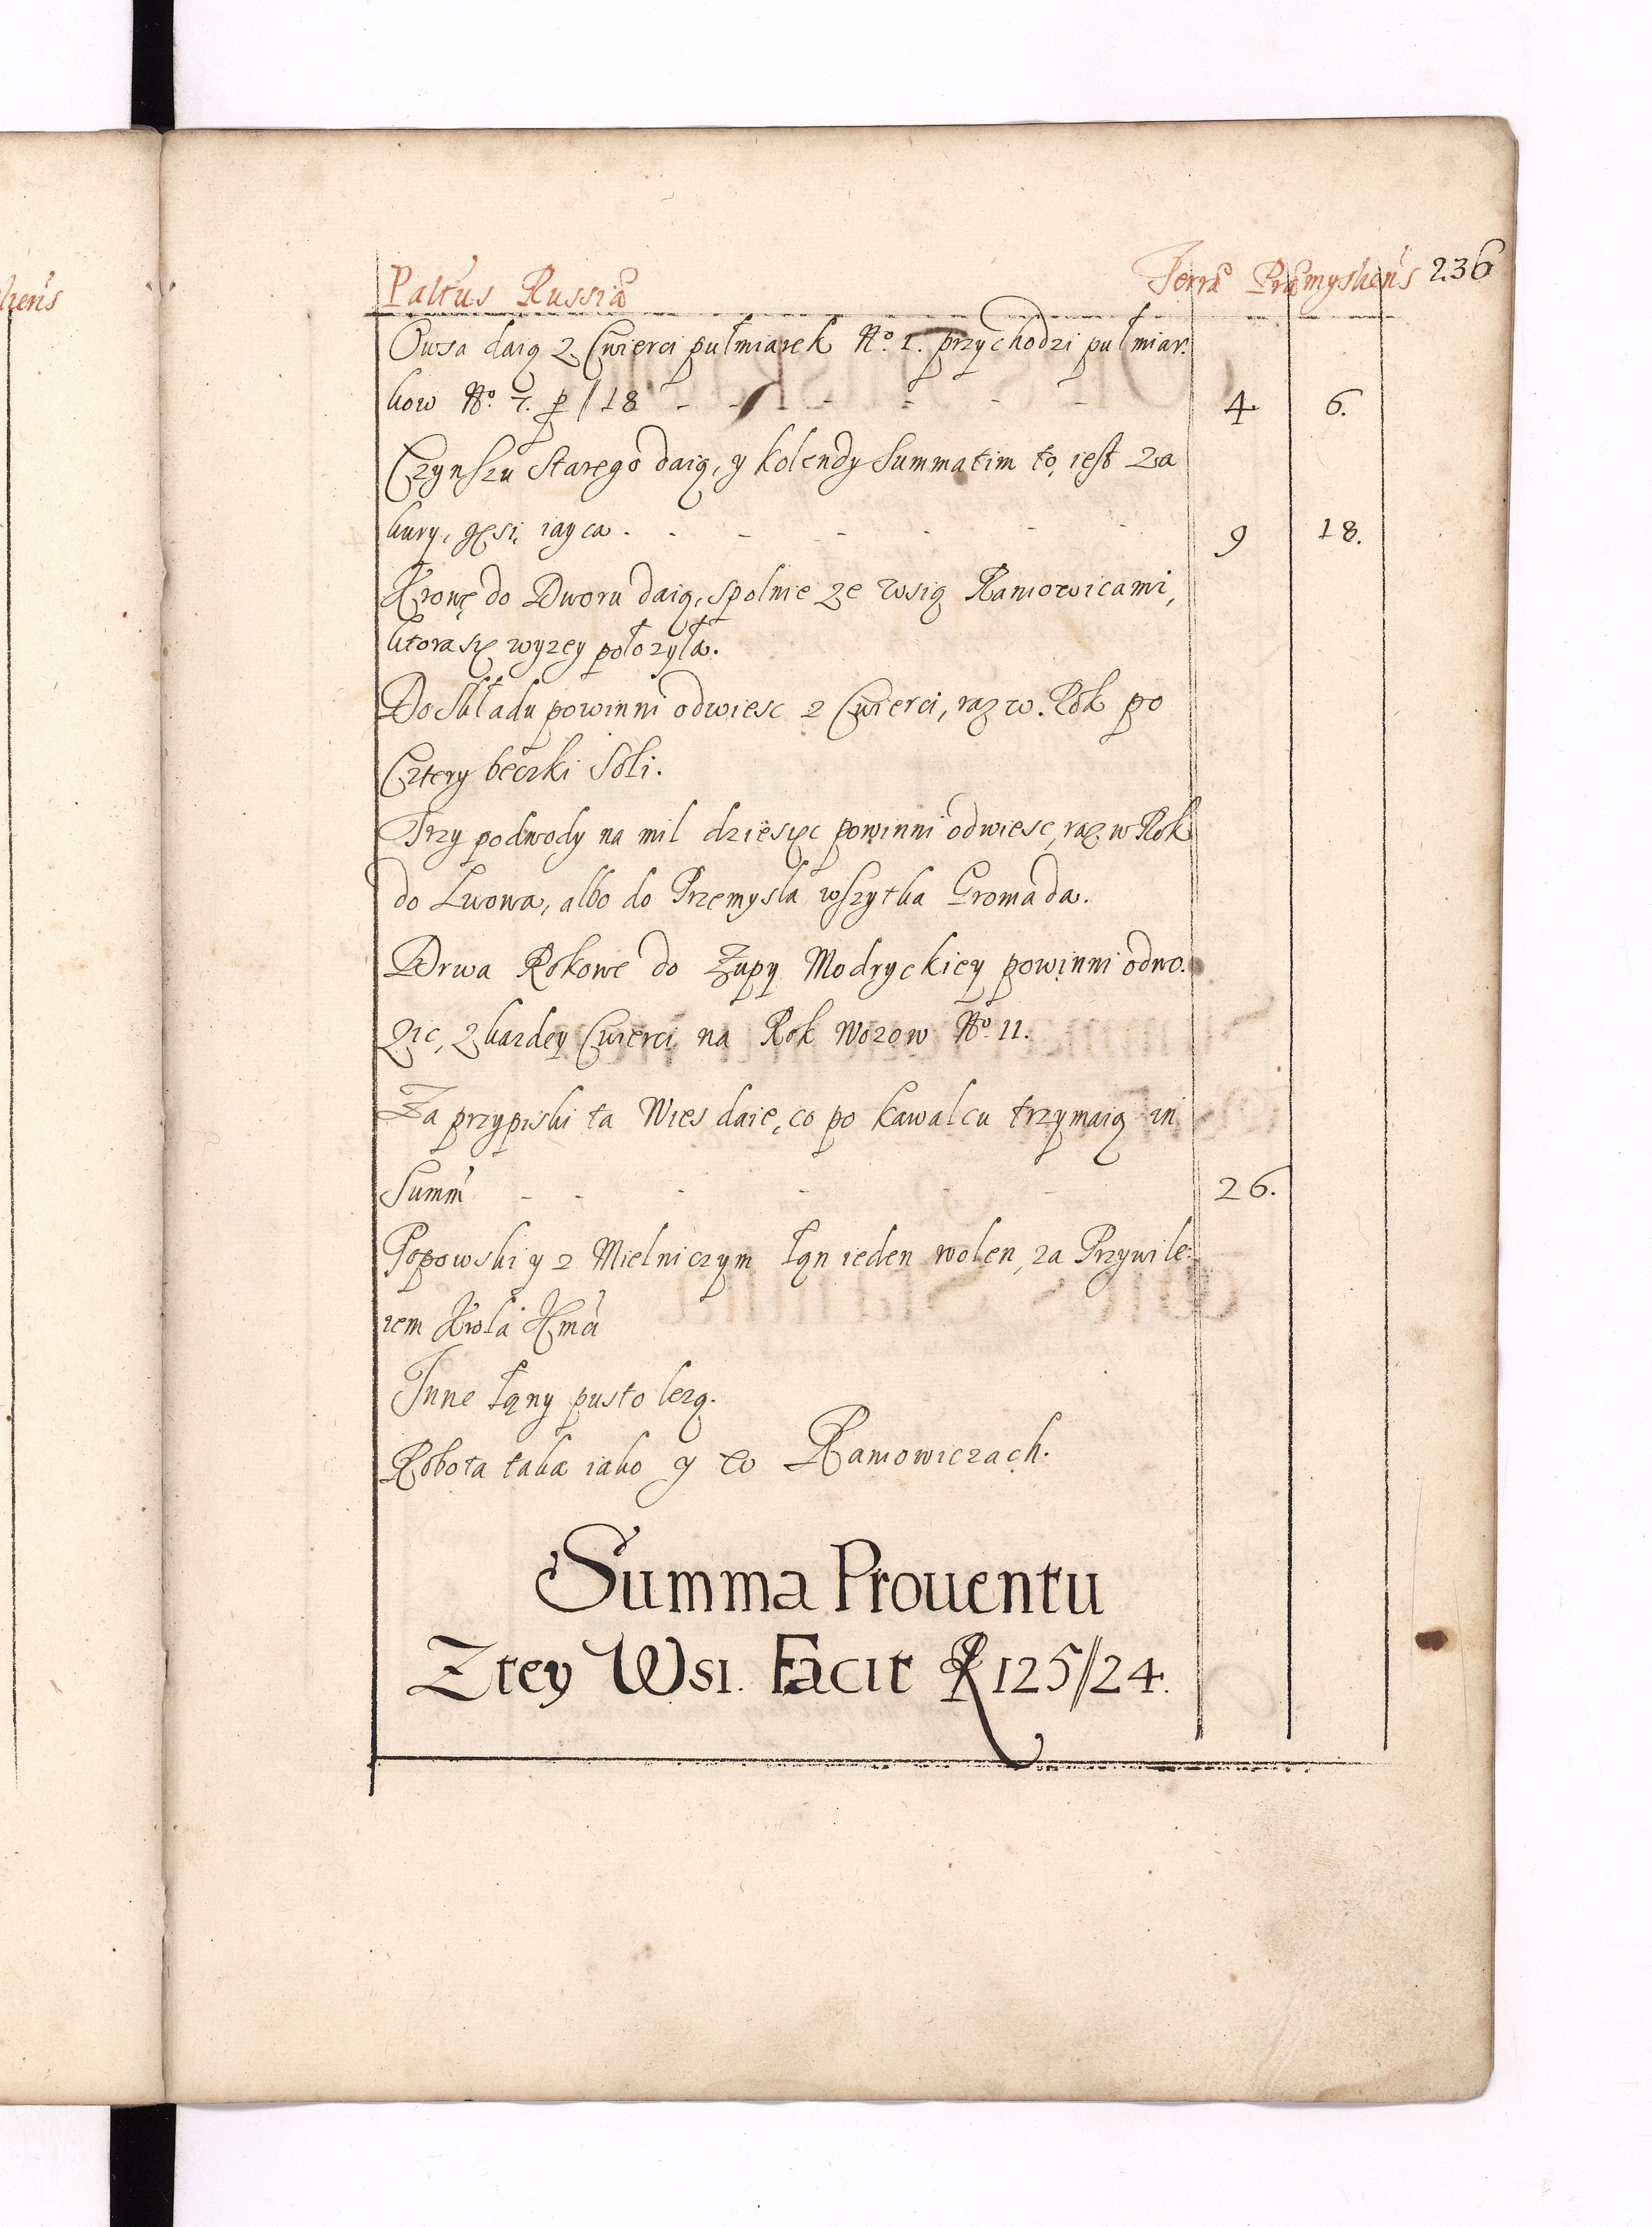 hens
Paltus Russiæ Terræ Præmyslien's 236
Owsa daią z Cwierci pułmiarek No. 1. przychodzi pułmiar:
kow No. 7. p / 18 - - - - - - 4 6.
Czynszu Starego daią, y kolendy Summatim to iest za
kury, gęsi, iayca . - - - - - 9 18.
Krowę do Dworu daią, spolnie ze wsią Raniowicami,
ktora się wyzey połozyła.
Do Składu powinni odwiesc z Cwierci, raz w Rok po
Cztery beczki Soli.
Trzy podwody na mil dziesięc powinni odwiesc, raz w Rok
do Lwowa, albo do Przemysla wszytka Gromada.
Drwa Rokowe do Zupy Modryckiey powinni odwo:
zic, z kazdey Cwierci na Rok Wozow No. 11.
Za przypiski ta Wies daie, co po kawalcu trzymaią in
Summ - - - - - 26.
Popowski y z Mielniczym łąn ieden wolen, za Przywile:
iem Krola Jmci
Inne łąny pusto lezą.
Robota taka iako y w Raniowiczach.
Summa Prouentu
Ztey Wsi. Facit fl 125//24.